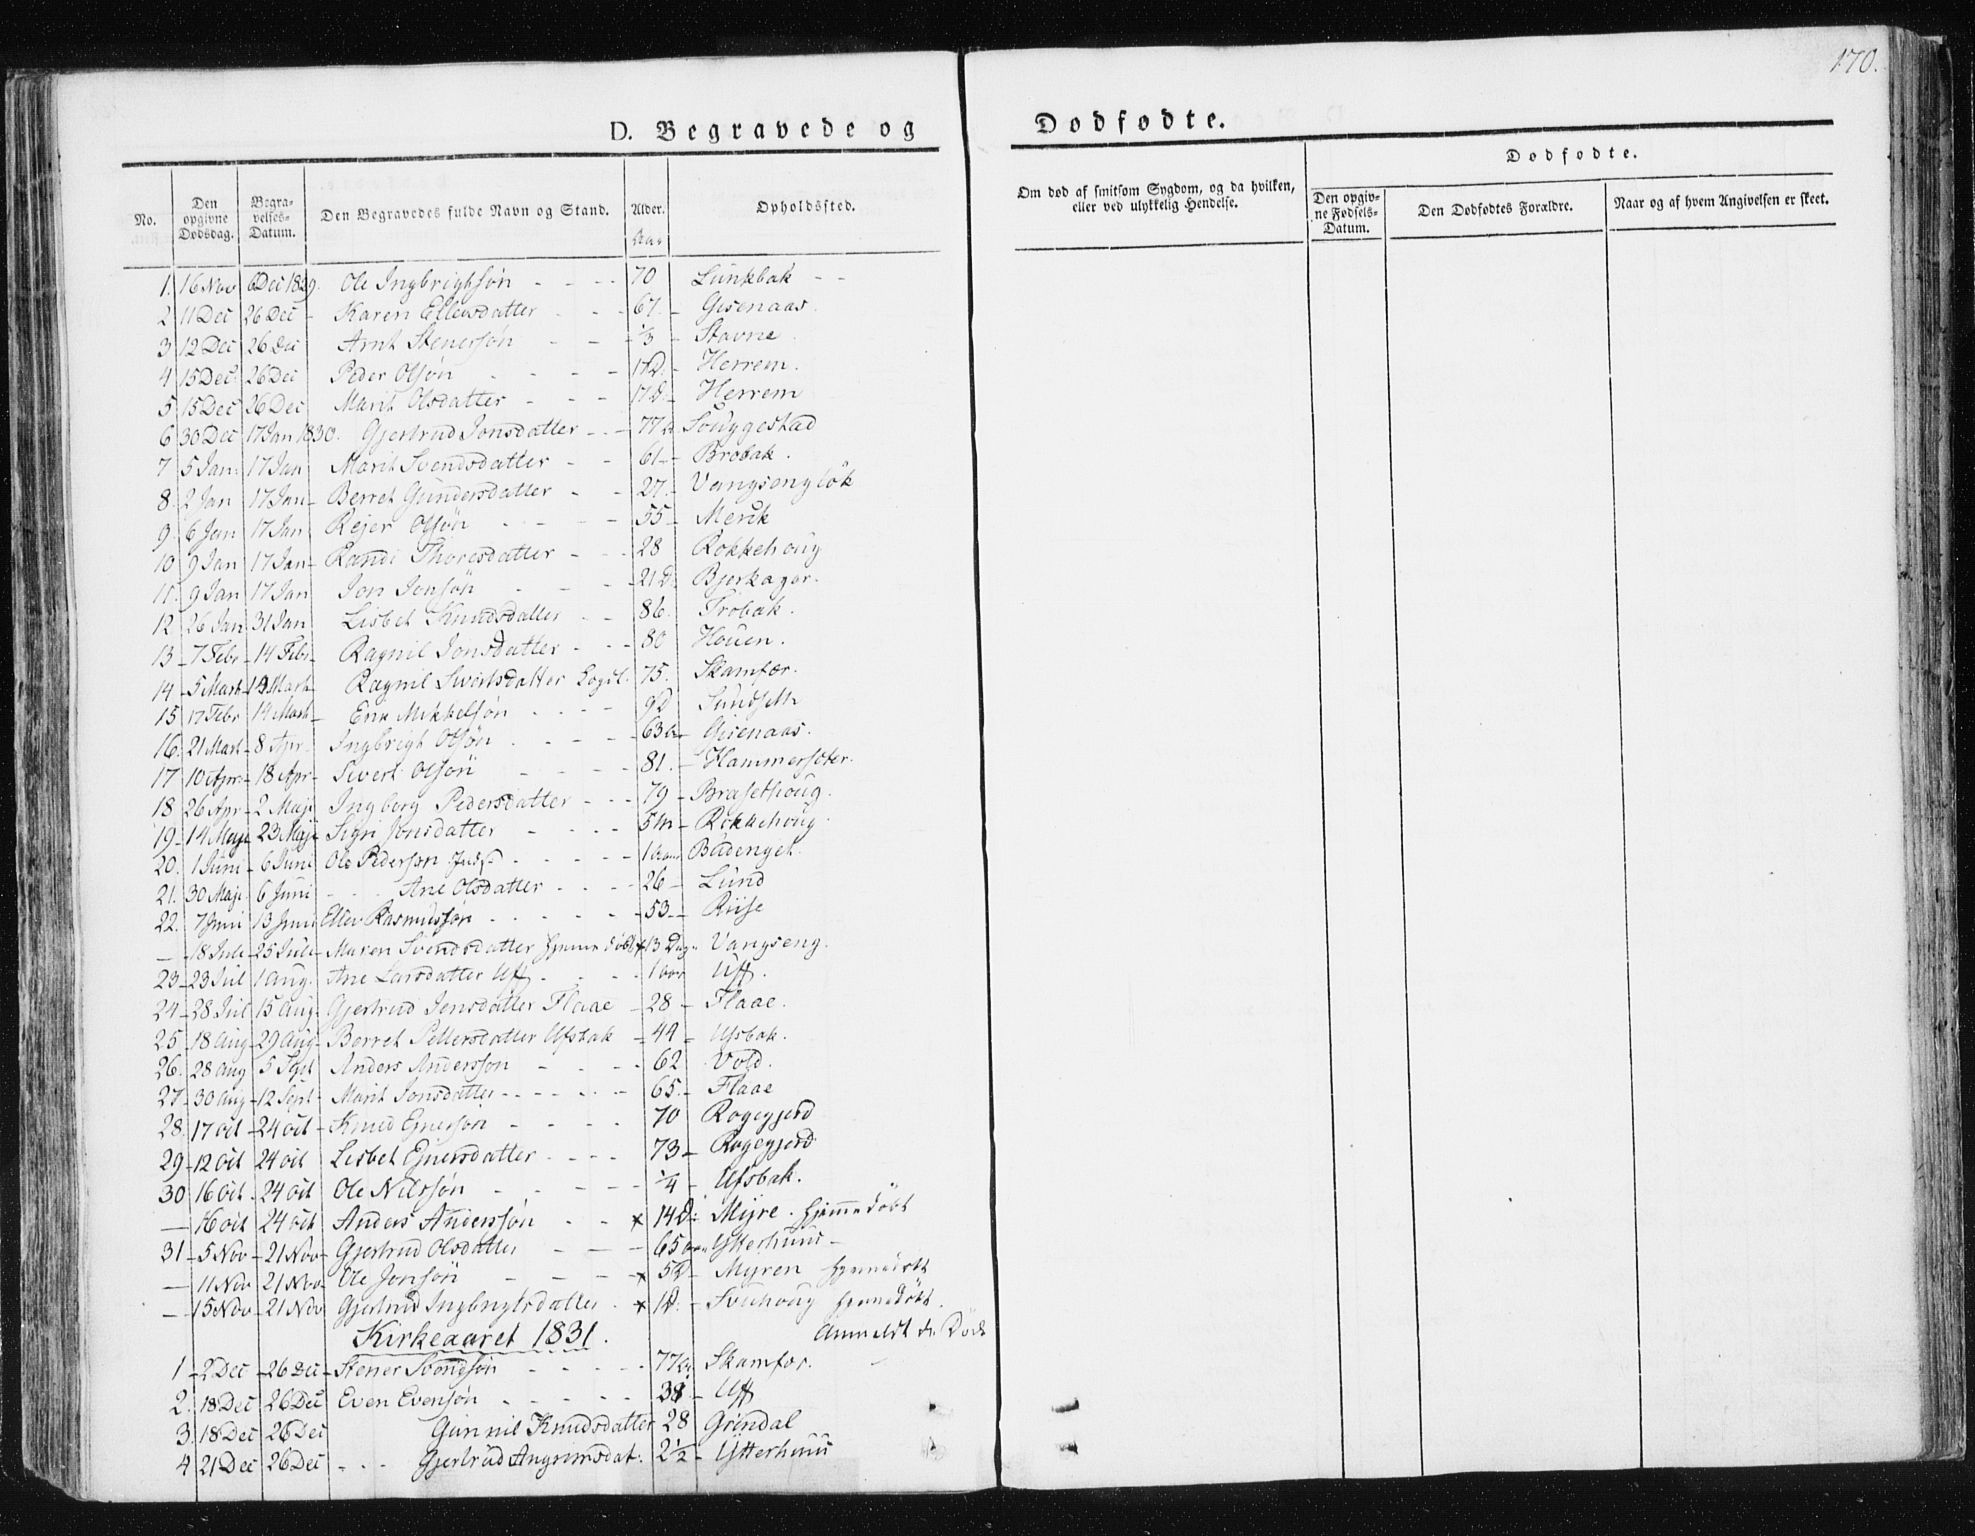 170.
D. Begravede og Dødfødte.
No.
Den opgivne Dødsdag.
Begravelses-Datum.
Den Begravedes fulde Navn og Stand.
Alder.
Aar
Opholdssted.
Om død af smitsom Sygdom, og da hvilken, eller ved ulykkelig Hendelse.
Dødfødte.
Den opgivne Fødsels-Datum.
Den Dødfødtes Forældre.
Naar og af hvem Angivelsen er skeet.
1. 16 Nov 6 Dec 1829. Ole Ingbrigtsøn 70 Lunkbak
2 11 Dec 26 Dec Karen Ellevsdatter 67 Gisenaas.
3 12 Dec 26 Dec Arnt Stenersøn 1/3 Stavne
4 15 Dec 26 Dec Peder Olsøn 17 D. Herrem.
5 15 Dec 26 Dec Marit Olsdatter 17 D. Herrem
6 30 Dec 17 Jan 1830. Gjertrud Jonsdatter 77 Souggestad
7 5 Jan 17 Jan Marit Svendsdatter 61 Brobak.
8 2 Jan 17 Jan Berret Gundersdatter 27 Vangsengløk
9 6 Jan 17 Jan Rejer Olsøn 55 Merck
10 9 Jan 17 Jan Randi Thoresdatter 28 Rokkehoug
11. 9 Jan 17 Jan Jon Jonsøn 21 D. Bjerkager.
12 26 Jan 31 Jan Lisbet Knudsdatter 86. Frobak.
13 7 Febr 14 Febr Ragnil Jonsdatter 80 Houen.
14 5 Mart Mart Ragnil Sivertsdatter Logil. 75. Skamfær.
15 17 Febr 14 Mart Erik Mikkelsøn 9 D Sundseth
16. 21 Mart 8 Apr Ingbrigt Olsøn 63 Gisenaas.
17 10 Apr 18 Apr Sivert Olsøn 81. Hammerseter.
18 26 Apr 2 Maji Ingborg Pedersdatter 79 Brasethoug.
19 14 Maji 23 Maji Sigri Jonsdatter 5 M Rokkehoug.
20. 1 Juni 6 Juni Ole Pedersøn 1 aar Badenget.
21. 30 Maji 6 Juni Ane Olsdatter 26 Lund
22. 7 Juni 13 Juni Ellev Rasmussøn 53 Riise
18 Juli 25 Juli Maren Svendsdatter hjemmedøbt x 13 Dag Vangseng.
23 23 Jul 1 Aug. Ane Larsdatter Uff 1 aar Uff.
24 28 Jul 15 Aug Gjertrud Jonsdatter Flaae 28 Flaae.
25 18 Aug 29 Aug Berret Pettersdatter Ufsbak 44 Ufsbak.
26. 28 Aug 5 Sept Anders Anderssøn 62 Vold.
27 30 Aug 12 Sept Marit Jonsdatter 65. Flaae
28. 17 Oct 24 Oct Knud Ejnersøn 70 Rogegjerd
29 12 Oct 24 Oct Lisbet Ejnersdatter 73 Rogegjerd
30 16 Oct 24 Oct Ole Nilssøn 1/4 Ufsbak.
16 Oct 24 Oct Anders Anderssøn x 14 D. Myre. hjemmedøbt
31 5 Nov 21 Nov Gjertrud Olsdatter 65 Ytterhuus
11 Nov 21 Nov Ole Jonsøn x 5 D Myren hjemmedøbt
15 Nov 21 Nov Gjertrud Ingbrigtsdatter x 1 D. hjemmedøbt.
Kirkeaaret 1831.
1 2 Dec 26 Dec Stener Svendsøn 77 Skamfær.
2. 18 Dec 26 Dec Even Evensøn 38 Uff
3. 18 Dec 26 Dec Gunnil Knudsdatter 28 Grindal
4 21 Dec 26 Dec Gjertrud Angrimsdat. 2 1/2 Ytterhuus